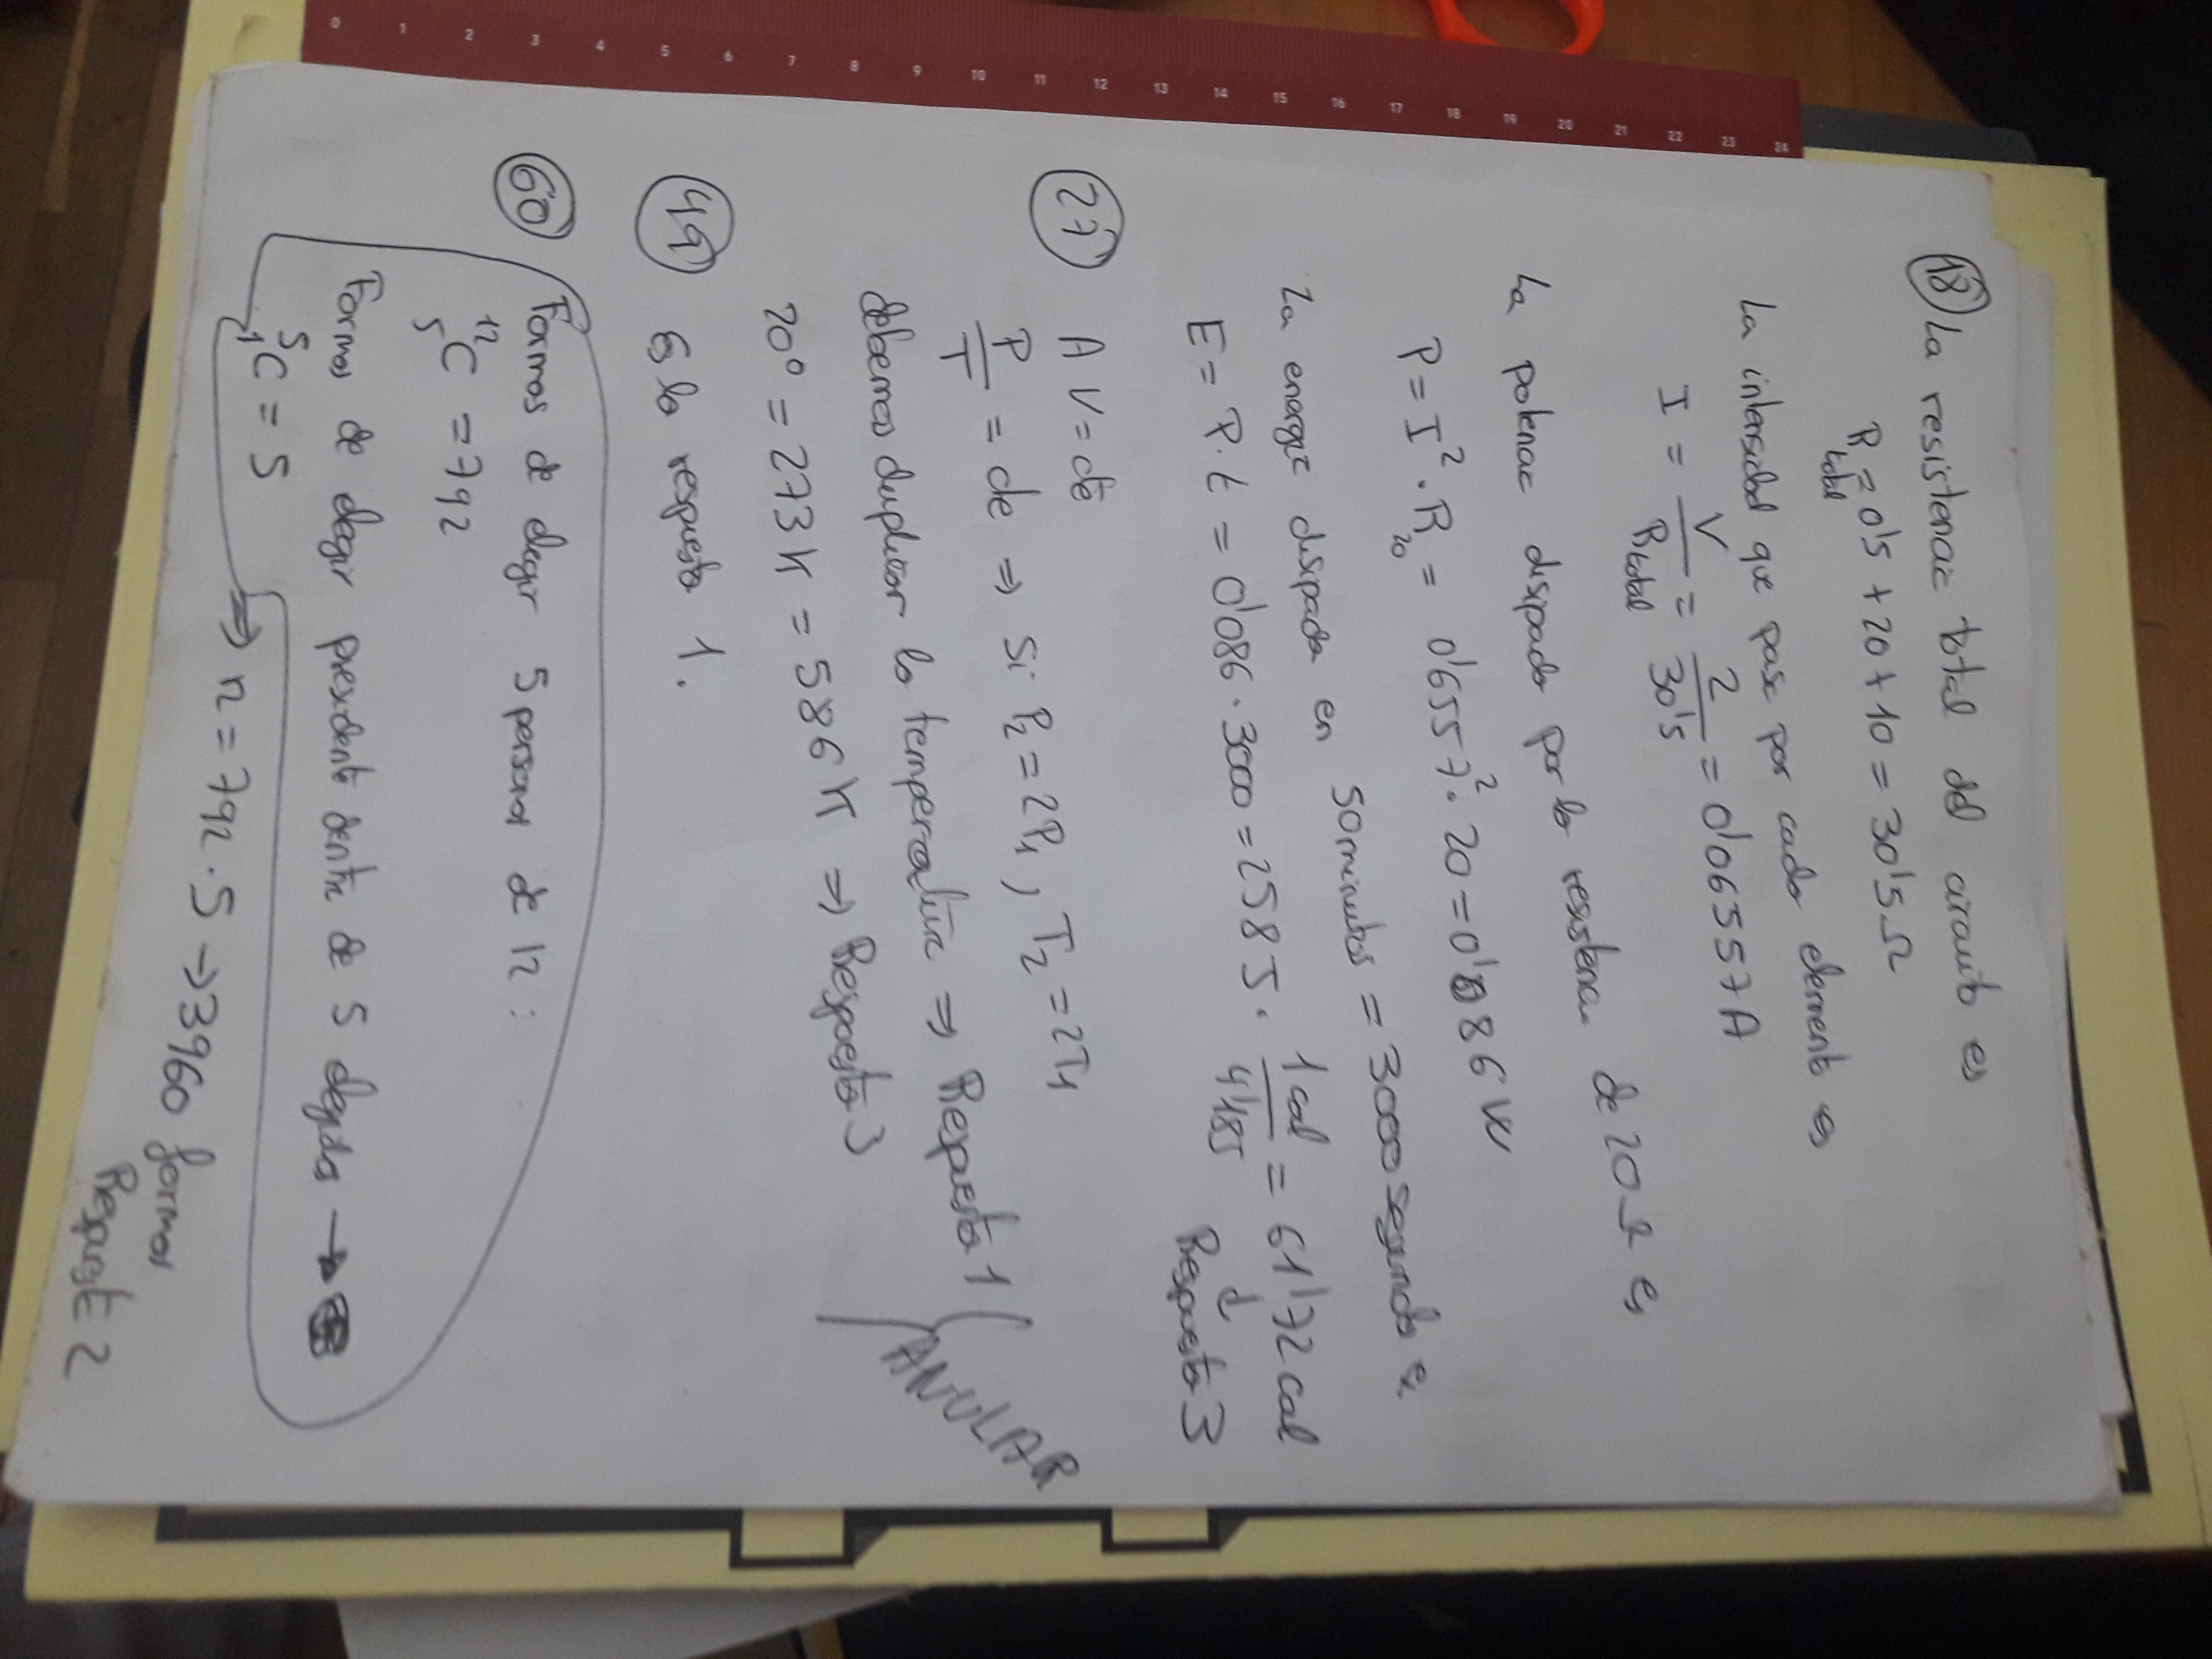 0 1 2 3 4 5 6 7 8 9 10 11 12 13 14 15 16 17 18 19 20 21 22 23 24
18 La resistenac total del circuito es
R total = 0'5 + 20 + 10 = 30'5 Ω
La intensidad que pasa por cada element es
I = V / R total = 2 / 30'5 = 0'06557 A
La potenac disipada por la resistenac de 20 Ω es
P = I² · R20 = 0'6557² · 20 = 0'086 W
La energía disipada en 50 minutos = 3000 segundos es
E = P · t = 0'086 · 3000 = 258 J · 1 cal / 4'18 J = 61'72 cal
↓
Respuesta 3
27 A V = cte
P / T = cte ⇒ Si P2 = 2P1, T2 = 2T1
debemos duplicar la temperatura ⇒ Respuesta 1
20° = 273 K = 586 K ⇒ Respuesta 3
ANULAR
49 Es la respuesta 1.
60 Formas de elegir 5 personas de 12:
12 C 5 = 792
Formas de elegir presidente dentro de 5 elegidos →
5 C 1 = 5
⇒ n = 792 · 5 → 3960 formas
Respuesta 2